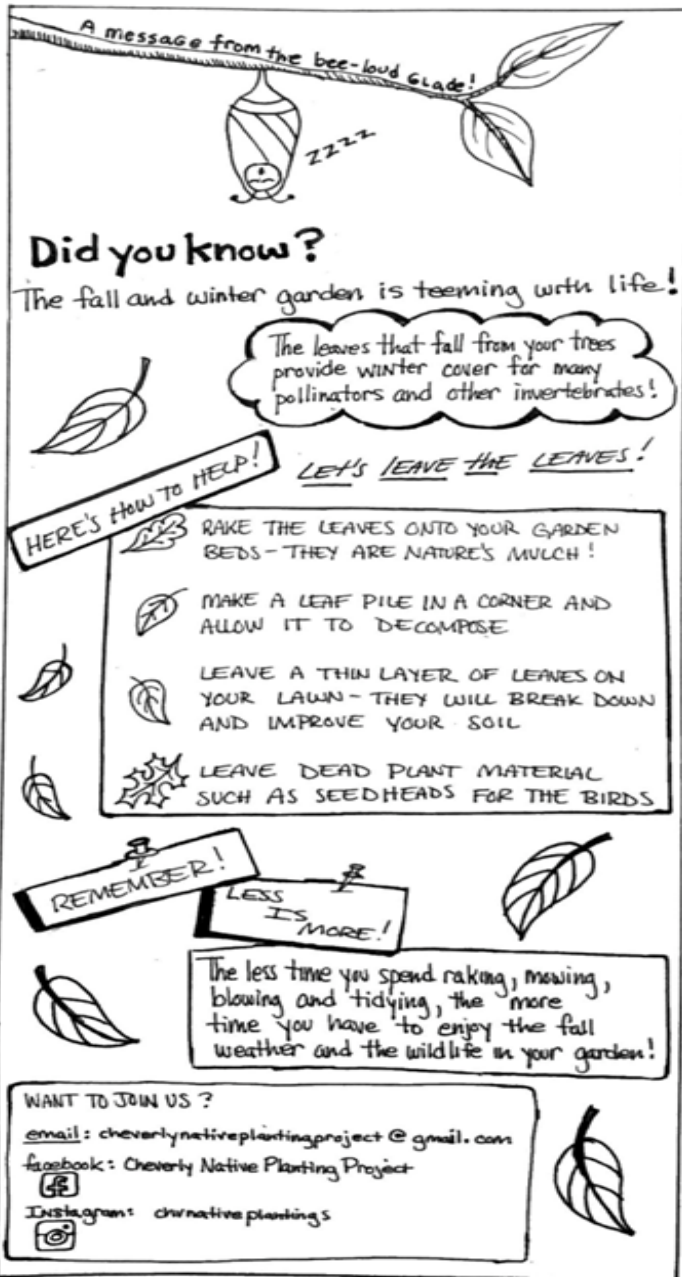 A message from the bee-loud Glade!
zzzz
Did you know?
The fall and winter garden is teeming with life!
The leaves that fall from your trees
provide winter cover for many
pollinators and other invertebrates!
HERE'S HOW TO HELP!
LET'S LEAVE the LEAVES!
RAKE THE LEAVES ONTO YOUR GARDEN
BEDS - THEY ARE NATURE'S MULCH!
MAKE A LEAF PILE IN A CORNER AND
ALLOW IT TO DECOMPOSE
LEAVE A THIN LAYER OF LEAVES ON
YOUR LAWN - THEY WILL BREAK DOWN
AND IMPROVE YOUR SOIL
LEAVE DEAD PLANT MATERIAL
SUCH AS SEEDHEADS FOR THE BIRDS
REMEMBER!
LESS
IS
MORE!
The less time you spend raking, mowing,
blowing and tidying, the more
time you have to enjoy the fall
weather and the wildlife in your garden!
WANT TO JOIN US?
email: cheverlynativeplantingproject@gmail.com
facebook: Cheverly Native Planting Project
Instagram: chvnativeplantings